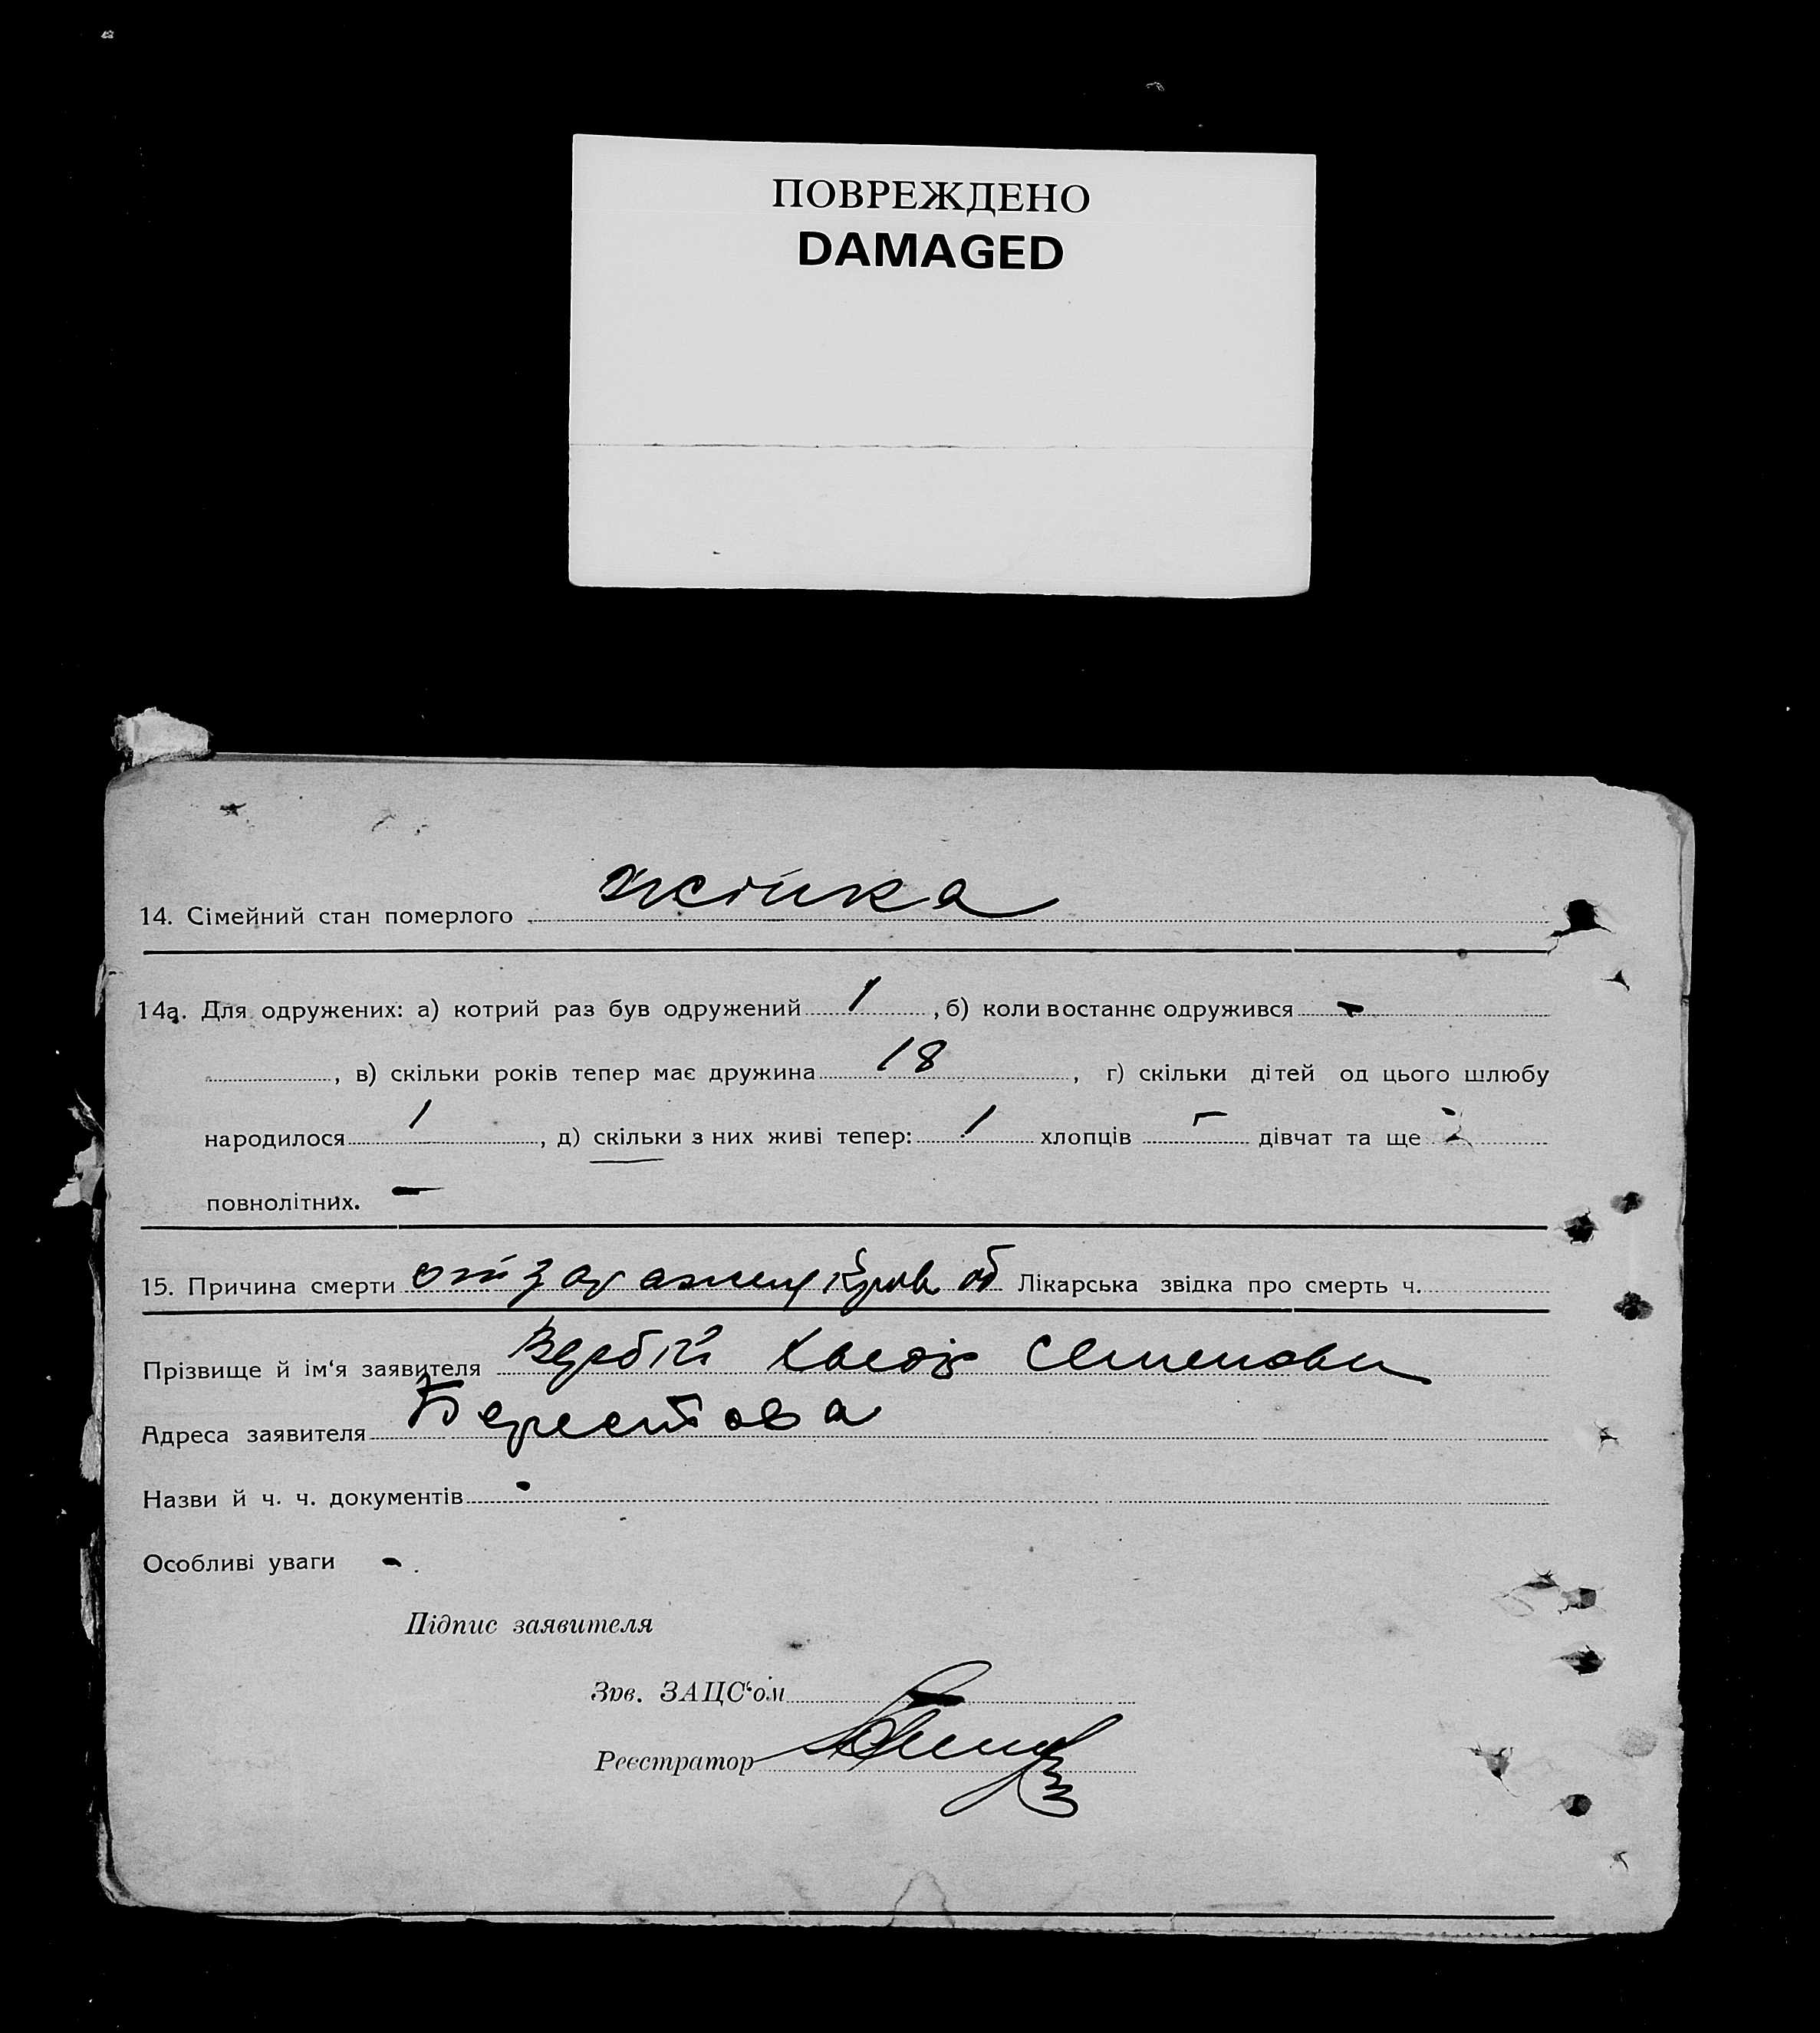 ПОВРЕЖДЕНО
DAMAGED
14. Сімейний стан померлого жінка
14а. Для одружених: а) котрий раз був одружений 1, б) коли востаннє одружився -
, в) скільки років тепер має дружина 18, г) скільки дітей од цього шлюбу
народилося 1, д) скільки з них живі тепер: 1 хлопців - дівчат та ще
повнолітних. -
15. Причина смерти от Лікарська звідка про смерть ч.
Прізвище й ім‘я заявителя Вербій
Адреса заявителя Берестова
Назви й ч. ч. документів -
Особливі уваги -
Підпис заявителя
Зав. ЗАЦС‘ом
Реєстратор